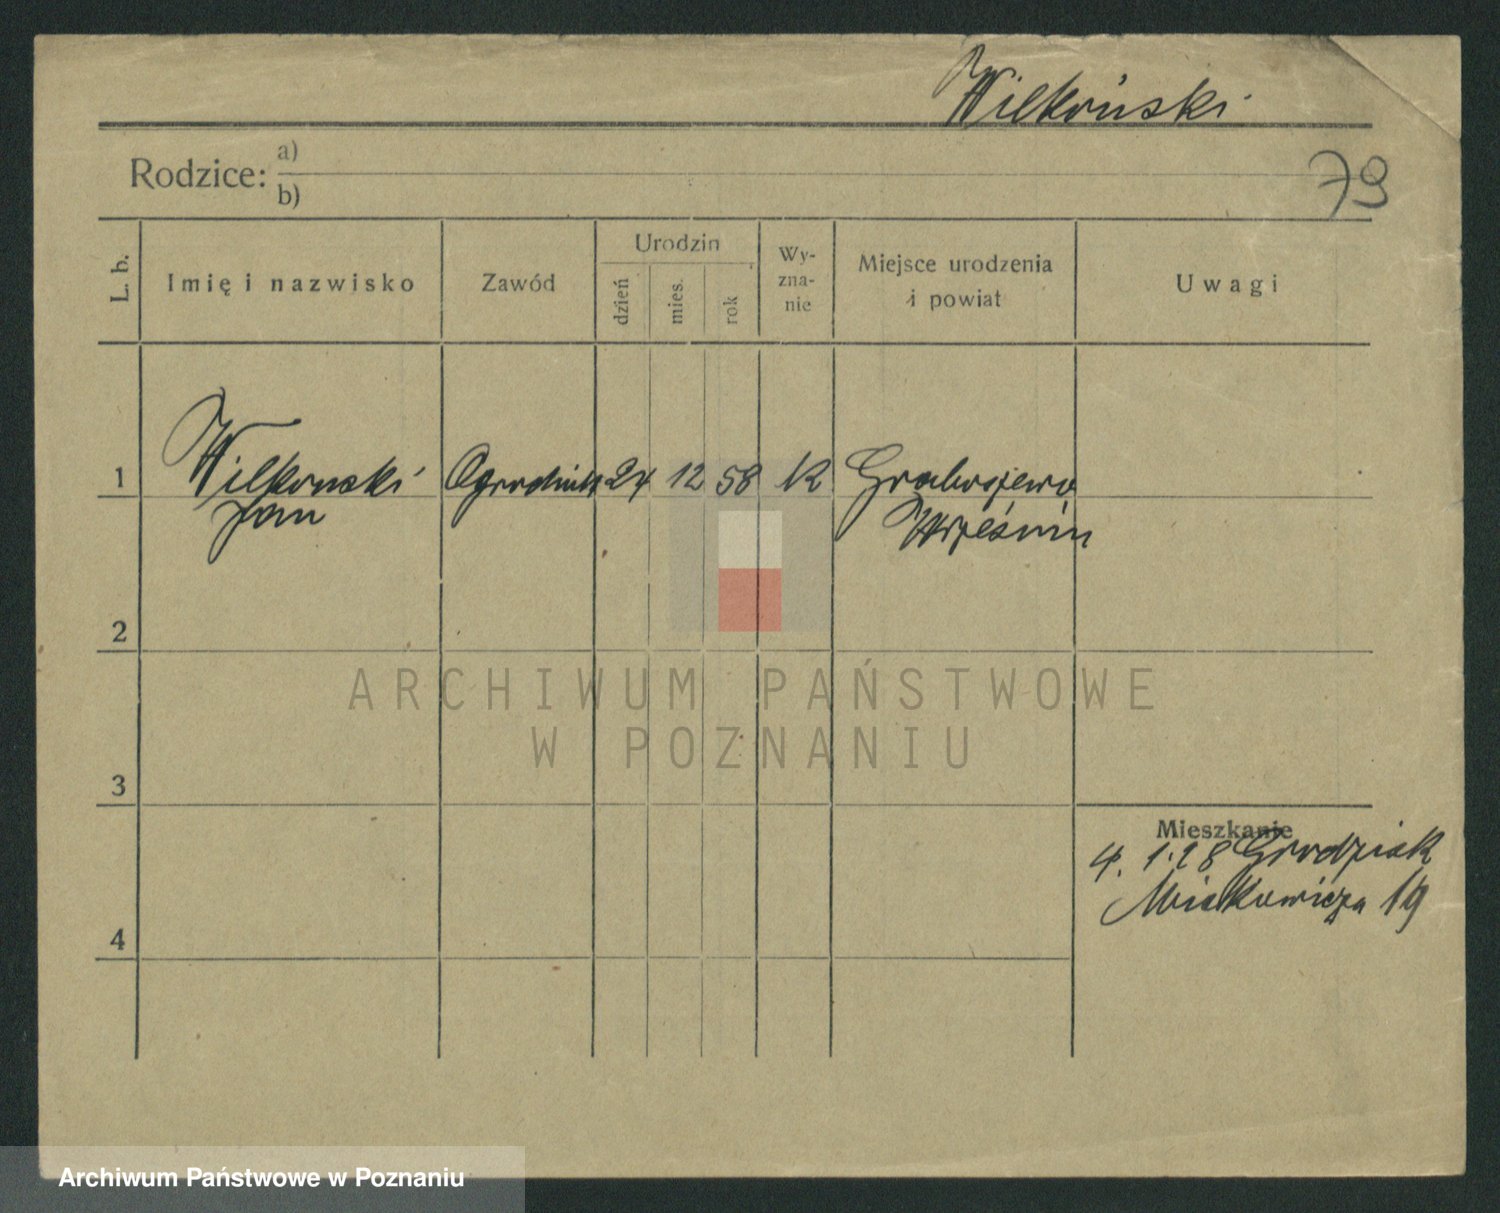 Wilkoński
Rodzice:
a)
b)
79
L. b.
Imię i nazwisko
Zawód
Urodzin
dzień
mies.
rok
Wy-
zna-
nie
Miejsce urodzenia
i powiat
Uwagi
1
Wilkonski
Jan
Ogrodnik
24
12
58
K
Grabojewo
2
3
4
Mieszkanie
4. 1. 28 Grodzisk
19
ARCHIWUM PAŃSTWOWE
W POZNANIU
Archiwum Państwowe w Poznaniu